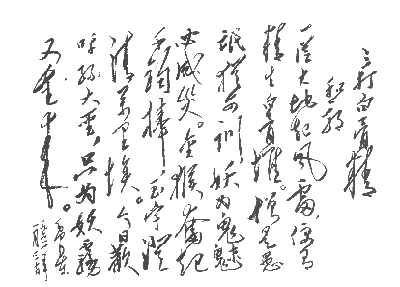 三打白骨精
一从大地起风雷，便有
精生白骨堆。僧是愚
氓犹可训，妖为鬼蜮
必成災。金猴奮起
千钧棒，玉宇澄
清万里埃。今日歡
呼孙大圣，只为妖霧
又重来。